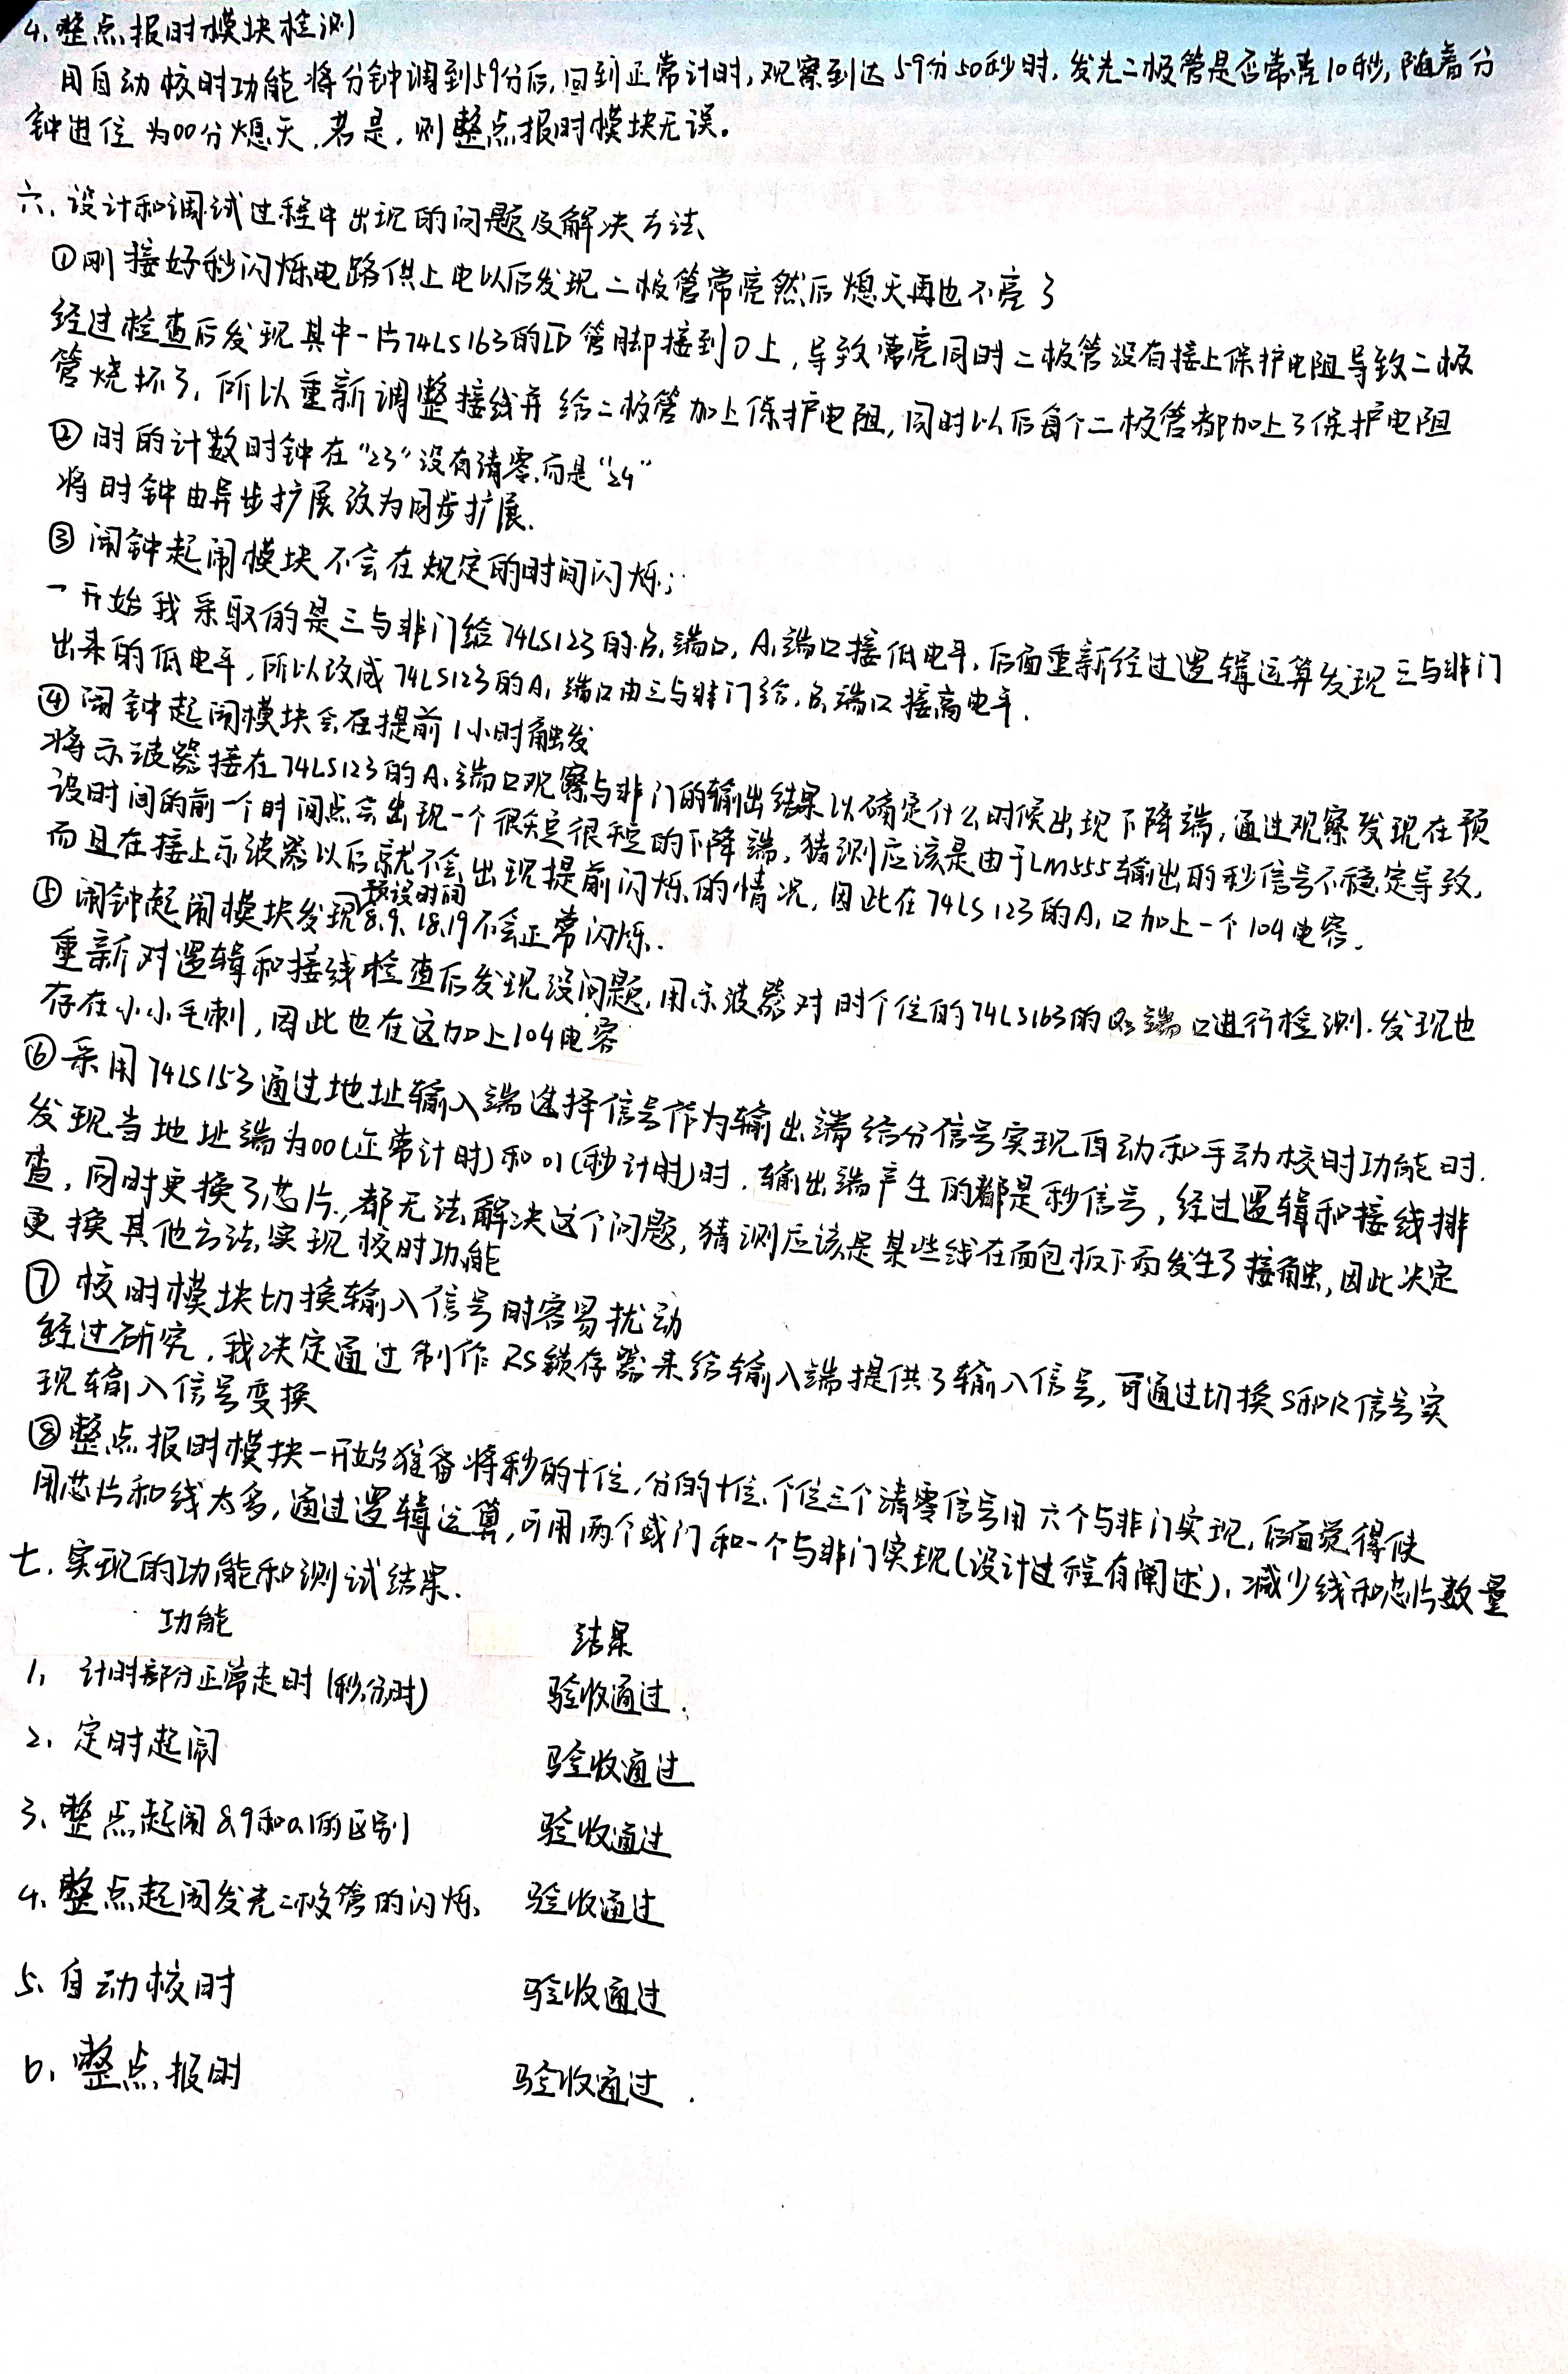 4、整点报时模块检测
用自动校时功能将分钟调到59分后,回到正常计时,观察到达59分50秒时,发光二极管是否常亮10秒,随着分
钟进位为00分熄灭,若是,则整点报时模块无误。
六、设计和调试过程中出现的问题及解决方法、
①刚接好秒闪烁电路供上电以后发现二极管常亮然后熄灭再也不亮了
经过检查后发现其中一片74LS163的LD管脚接到0上,导致常亮同时二极管没有接上保护电阻导致二极
管烧坏了,所以重新调整接线并给二极管加上保护电阻,同时以后每个二极管都加上了保护电阻
②时的计数时钟在“23”没有清零,而是“24”
将时钟由异步扩展改为同步扩展.
③闹钟起闹模块不会在规定的时间闪烁;
一开始我采取的是三与非门给74LS123的B₁端口,A₁端口接低电平,后面重新经过逻辑运算发现三与非门
出来的低电平,所以改成74LS123的A₁端口由三与非门给,B₁端口接高电平.
④闹钟起闹模块会在提前1小时触发
将示波器接在74LS123的A₁端口观察与非门的输出结果以确定什么时候出现下降端,通过观察发现在预
设时间的前一个时间点会出现一个很短很短的下降端,猜测应该是由于LM555输出的秒信号不稳定导致,
而且在接上示波器以后就不会出现提前闪烁的情况,因此在74LS123的A₁口加上一个104电容.
⑤闹钟起闹模块发现预设时间8.9.18.19不会正常闪烁.
重新对逻辑和接线检查后发现没问题,用示波器对时个位的74LS163的Q₃端口进行检测.发现也
存在小小毛刺,因此也在这加上104电容
⑥采用74LS153通过地址输入端选择信号作为输出端给分信号实现自动和手动校时功能时.
发现当地址端为00(正常计时)和01(秒计时)时.输出端产生的都是秒信号,经过逻辑和接线排
查,同时更换了芯片,都无法解决这个问题,猜测应该是某些线在面包板下面发生了接触,因此决定
更换其他方法实现校时功能
⑦校时模块切换输入信号时容易扰动
经过研究,我决定通过制作RS锁存器来给输入端提供了输入信号,可通过切换S和R信号实
现输入信号变换
⑧整点报时模块一开始准备将秒的十位,分的十位、个位三个清零信号用六个与非门实现,后面觉得使
用芯片和线太多,通过逻辑运算,可用两个或门和一个与非门实现(设计过程有阐述),减少线和芯片数量
七、实现的功能和测试结果.
功能 结果
1、计时部分正常走时(秒,分,时) 验收通过.
2、定时起闹 验收通过
3、整点起闹8,9和0,1的区别 验收通过
4、整点起闹发光二极管的闪烁、 验收通过
5、自动校时 验收通过
6、整点报时 验收通过.